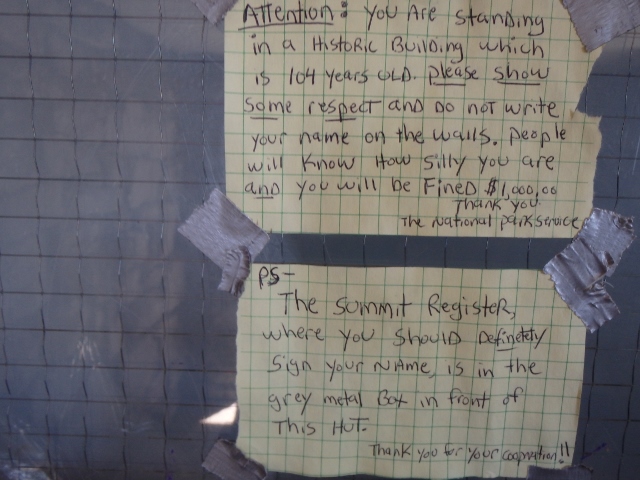 Attention: You Are Standing
in a Historic Building which
is 104 years OLD. please show
some respect and Do not write
your name on the walls. people
will know How silly you are
and you will be Fined $1,000,00
Thank you
The National Park Service
PS-
The Summit Register,
where you should Definetely
Sign your NAme, is in the
grey metal Box in front of
This Hut.
Thank you for your cooperation!!